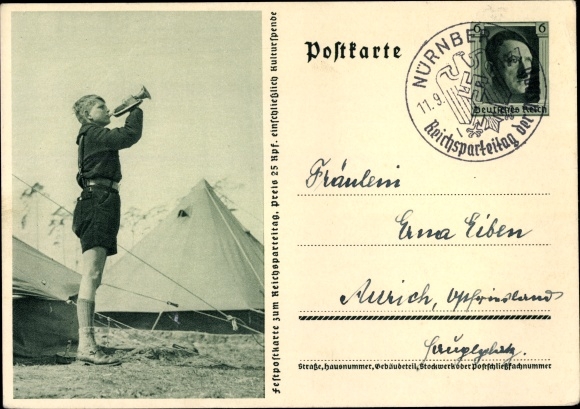 Festpostkarte zum Reichsparteitag. Preis 25 Rpf. einschließlich Kulturspende
Postkarte
NÜRNBERG
11.9.
Reichsparteitag der
6 6
Deutsches Reich
Fräulein
Erna Eiben
Aurich, Ostfriesland
Straße, Hausnummer, Gebäudeteil, Stockwerk oder Postschließfachnummer